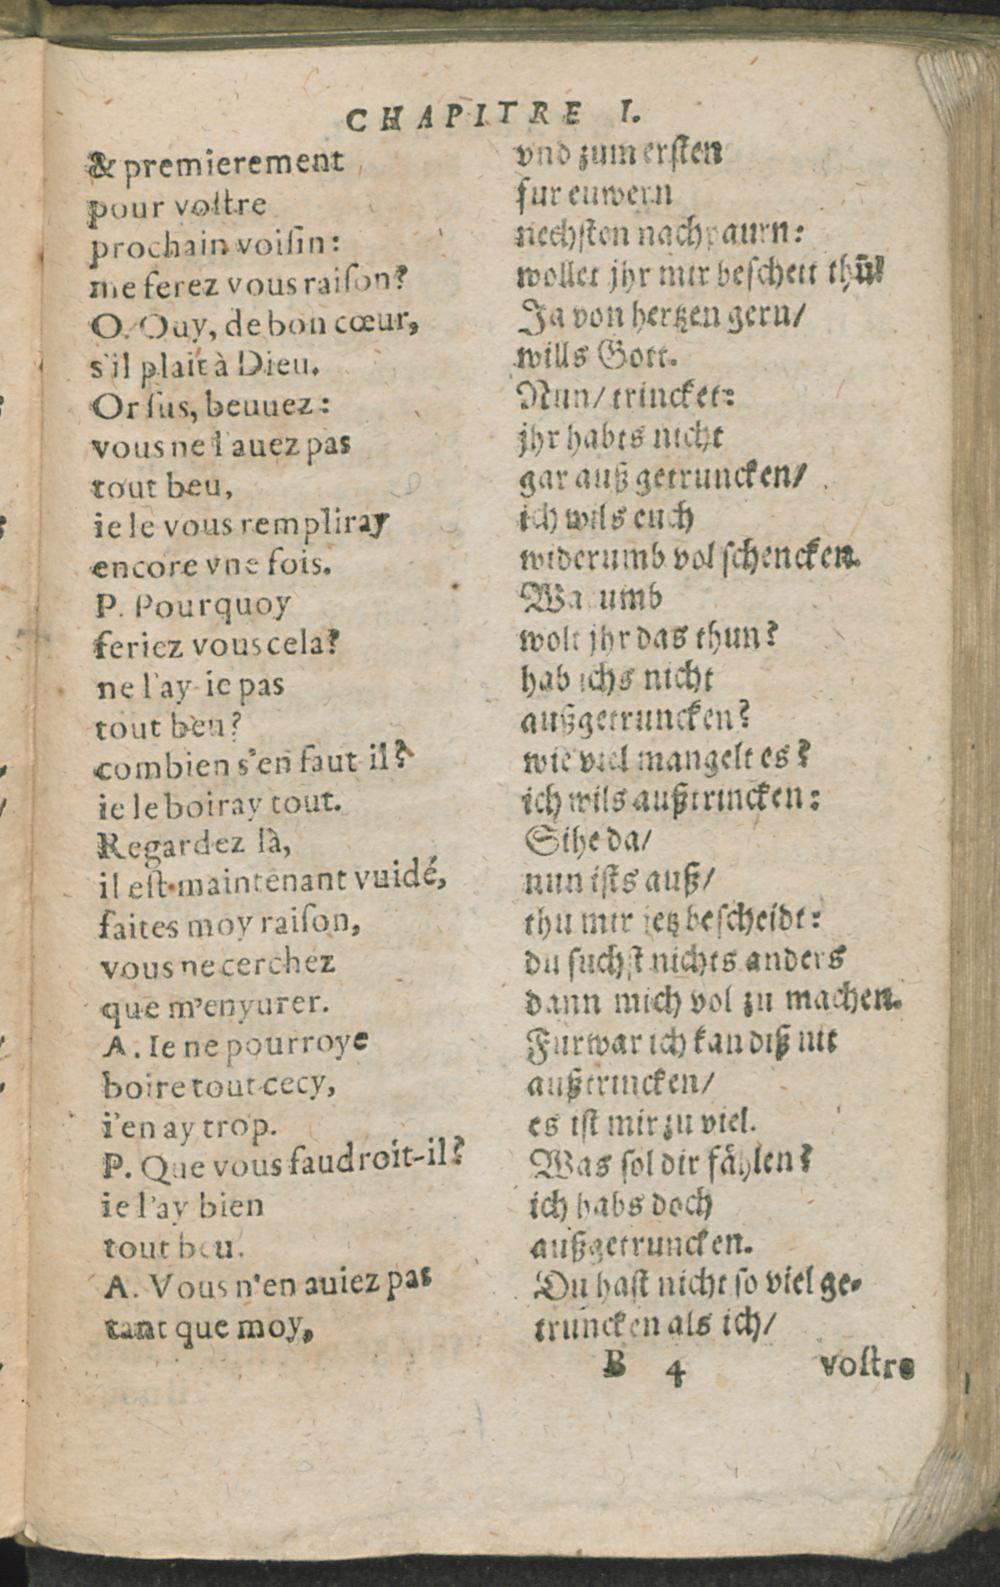 CHAPITRE I.
& premierement
pour voſtre
prochain voiſin:
me ferez vous raiſon?
O. Ouy, de bon cœur,
s'il plait à Dieu.
Or ſus, beuuez:
vous ne l'auez pas
tout beu,
ie le vous rempliray
encore vne fois.
P. Pourquoy
feriez vous cela?
ne l'ay-ie pas
tout beu?
combien s'en faut-il?
ie le boiray tout.
Regardez là,
il eſt maintenant vuidé,
faites moy raiſon,
vous ne cerchez
que m'enyurer.
A. Ie ne pourroye
boire tout cecy,
i'en ay trop.
P. Que vous faudroit-il?
ie l'ay bien
tout beu.
A. Vous n'en auiez pas
tant que moy,
vnd zum erſten
fur euwern
nechſten nachpaurn:
wollet jhr mir beſcheit thū?
Ja von hertzen gern/
wills Gott.
Nun/ trincket:
jhr habts nicht
gar auß getruncken/
ich wils euch
widerumb vol ſchencken.
Warumb
wolt jhr das thun?
hab ichs nicht
außgetruncken?
wie viel mangelt es?
ich wils außtrincken:
Sihe da/
nun iſts auß/
thu mir jetz beſcheidt:
du ſuchſt nichts anders
dann mich vol zu machen.
Furwar ich kan diß nit
außtrincken/
es iſt mir zu viel.
Was ſol dir fåhlen?
ich habs doch
außgetruncken.
Du haſt nicht ſo viel ge-
truncken als ich/
B 4 voſtre